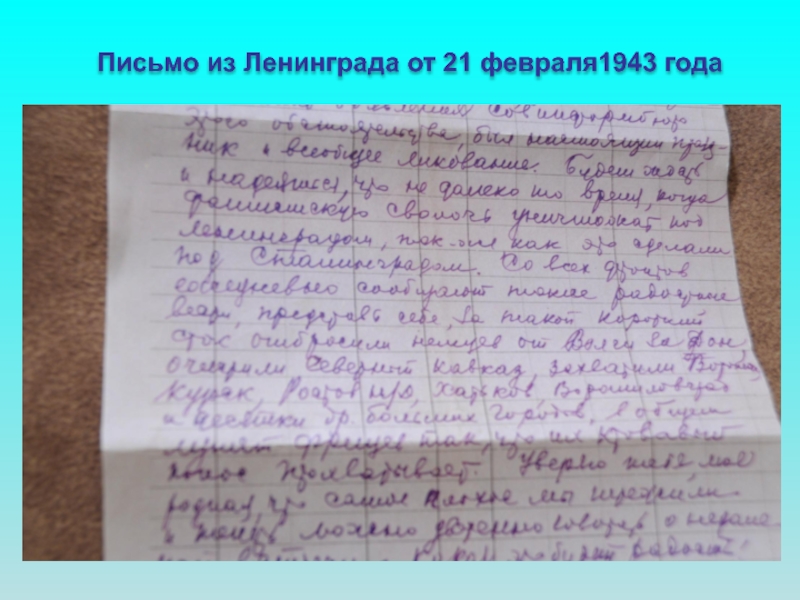 Письмо из Ленинграда от 21 февраля1943 года
Совинформбюро
этого обстоятельства, был настоящий празд-
ник и всеобщее ликование. Будем ждать
и надеяться, что не далеко то время, когда
фашистскую сволочь уничтожат под
Ленинградом, так-же как это сделали
под Сталинградом. Со всех фронтов
ежедневно сообщают такие радостные
вещи, представь себе, за такой короткий
срок отбросили немцев от Волги за Дон,
очистили Северный Кавказ, захватили
Курск, Ростов н/Д, Харьков, Ворошиловград
и десятки др. больших городов, в общем
лупят фрицев так, что их кровавый
понос прохватывает. Уверяю тебя, моя
родная, что самое плохое мы пережили
и теперь можно уверенно говорить о